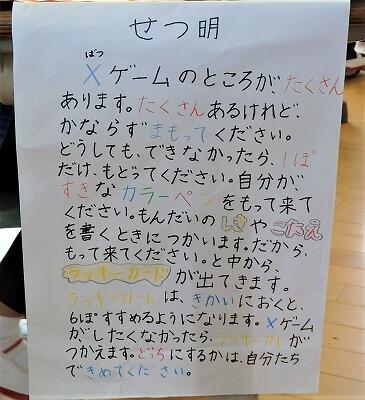 せつ明
ばつ
×ゲームのところが、たくさん
あります。たくさんあるけれど、
かならずまもってください。
どうしても、できなかったら、1ぽ
だけ、もどってください。自分が、
すきなカラーペンをもって来て
ください。もんだいのしきやこたえ
を書くときにつかいます。だから、
もって来てください。と中から、
ラッキーカードが出てきます。
ラッキーカードは、きかいにおくと、
6ぽすすめるようになります。×ゲーム
がしたくなかったら、ラッキーカードが
つかえます。どっちにするかは、自分たち
できめてください。